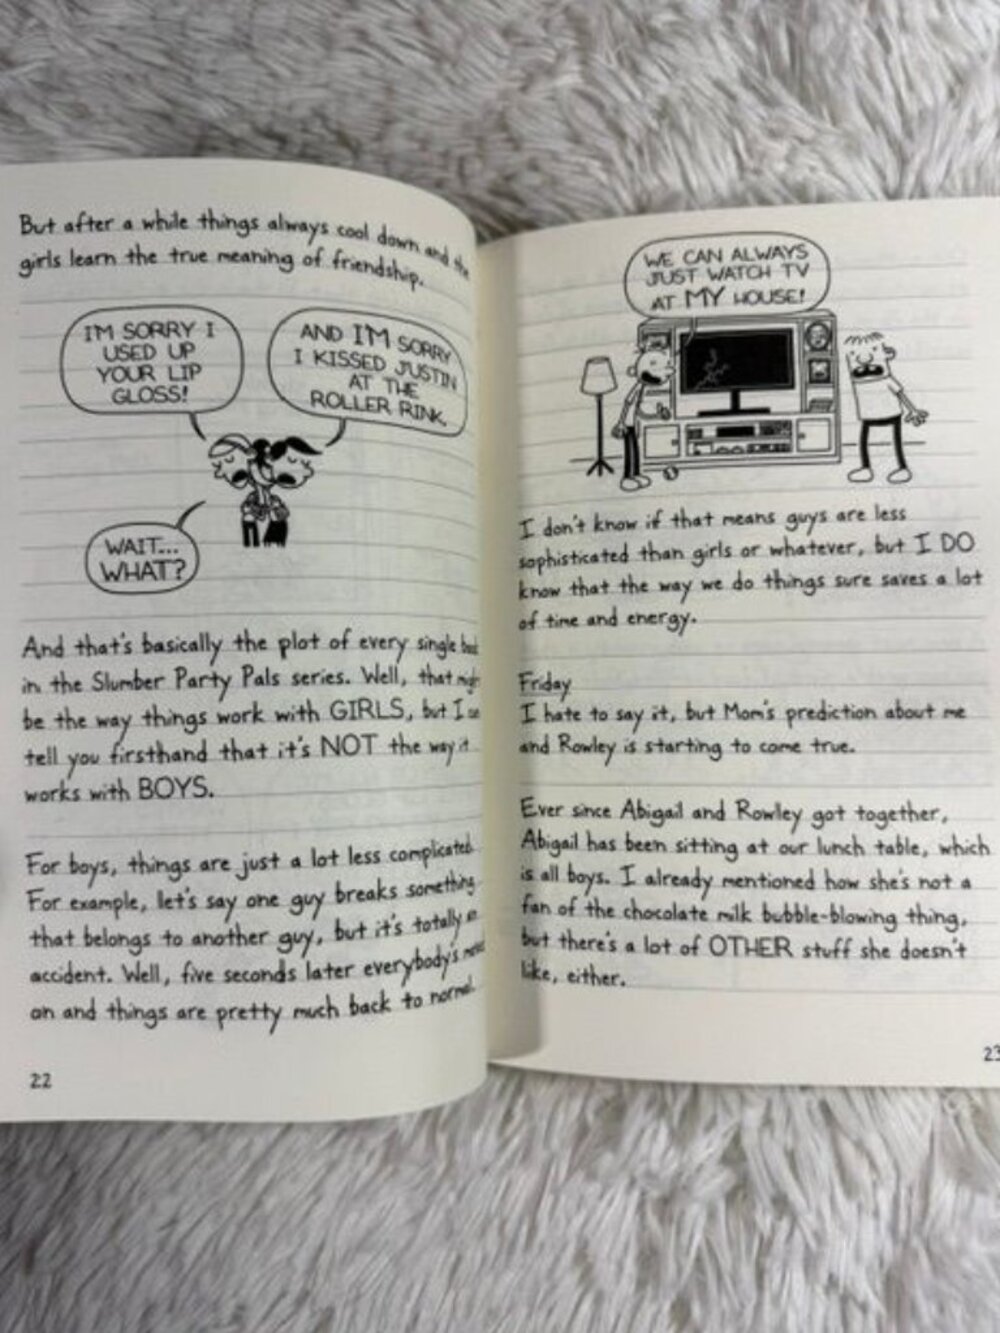 But after a while things always cool down and the
girls learn the true meaning of friendship.
I'M SORRY I
USED UP
YOUR LIP
GLOSS!
AND I'M SORRY
I KISSED JUSTIN
AT THE
ROLLER RINK.
WAIT...
WHAT?
And that's basically the plot of every single book
in the Slumber Party Pals series. Well, that might
be the way things work with GIRLS, but I can
tell you firsthand that it's NOT the way it
works with BOYS.
For boys, things are just a lot less complicated.
For example, let's say one guy breaks something
that belongs to another guy, but it's totally an
accident. Well, five seconds later everybody's moved
on and things are pretty much back to normal.
22
WE CAN ALWAYS
JUST WATCH TV
AT MY HOUSE!
I don't know if that means guys are less
sophisticated than girls or whatever, but I DO
know that the way we do things sure saves a lot
of time and energy.
Friday
I hate to say it, but Mom's prediction about me
and Rowley is starting to come true.
Ever since Abigail and Rowley got together,
Abigail has been sitting at our lunch table, which
is all boys. I already mentioned how she's not a
fan of the chocolate milk bubble-blowing thing,
but there's a lot of OTHER stuff she doesn't
like, either.
23